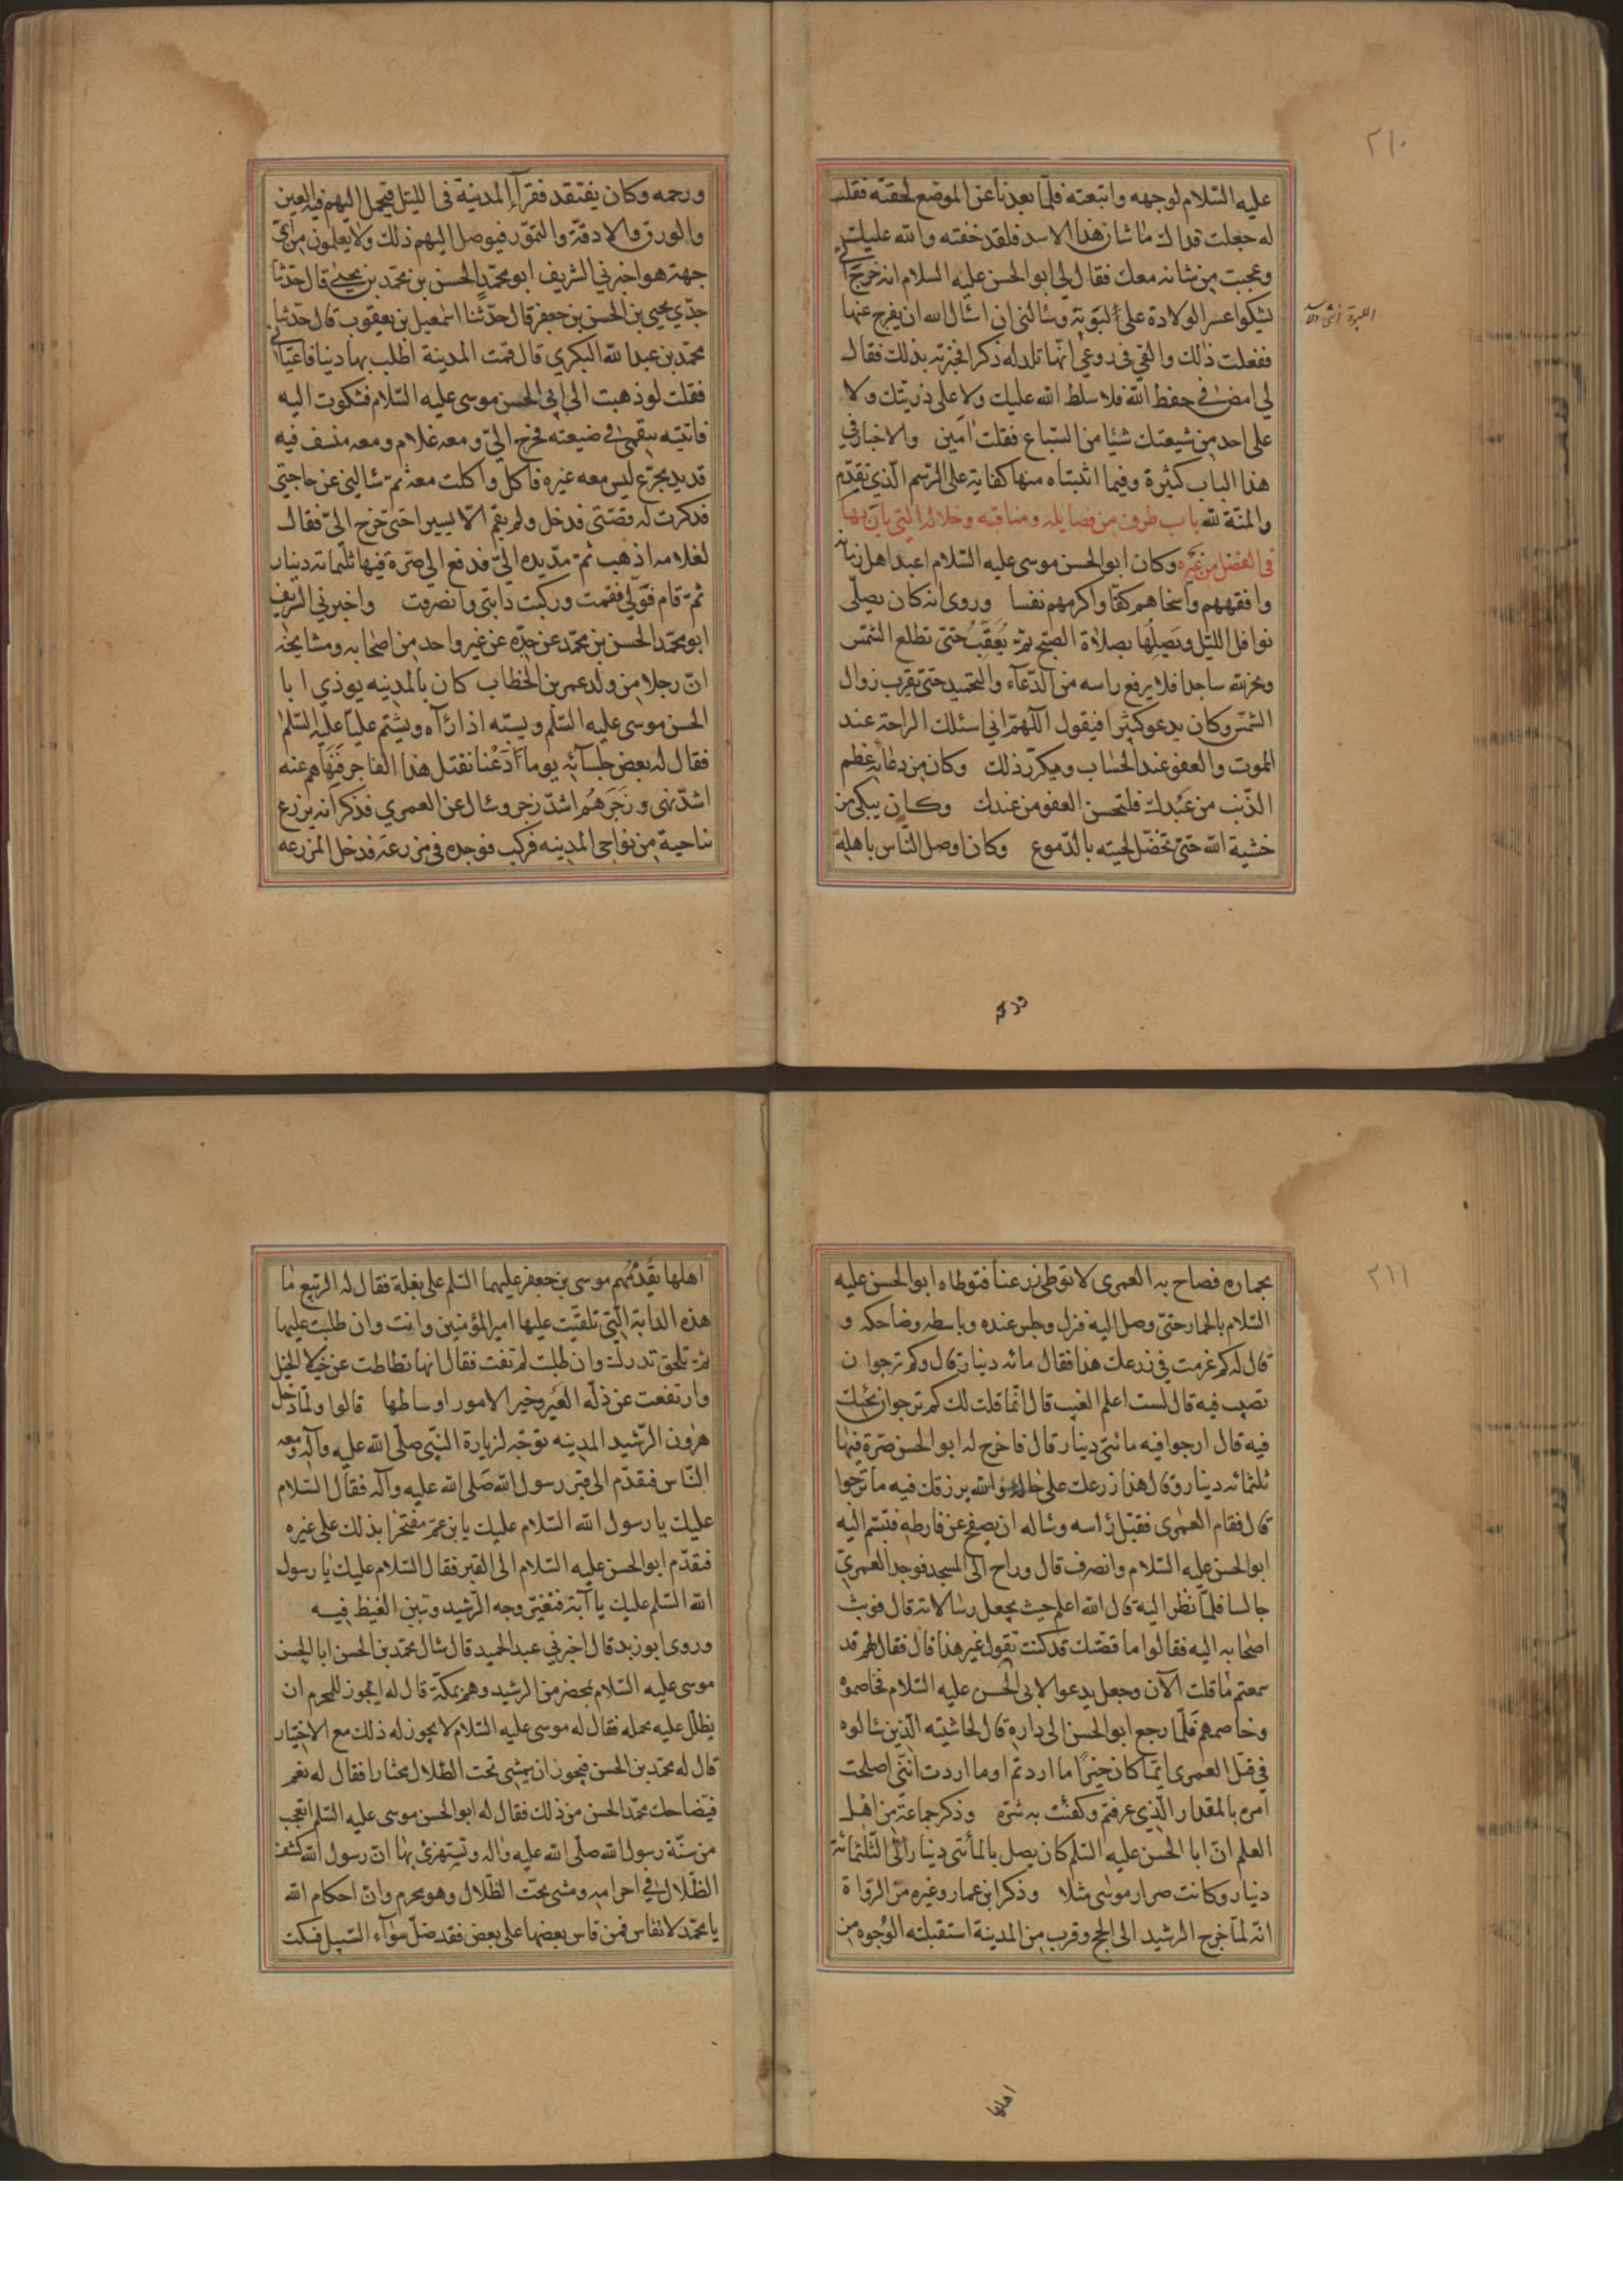 ٢١٠
عليه السّلام لوجهه واتبعته فلمّا بعدنا عن الموضع لحقته فقلت
له جعلت فداك ما شان هذا الاسد فلقد خفته والله عليك
وعجبت من شانه معك فقال لي ابو الحسن عليه السلام انه خرج اليّ
يشكوا عسر الولادة على لبوته وسالني ان اسال الله ان يفرج عنها
ففعلت ذلك والقي في روعي انّها تلد له ذكرا فخبرته بذلك فقال
لي امض في حفظ الله فلا سلط الله عليك ولا على ذريتك ولا
على احد من شيعتك شيئا من السّباع فقلت آمين والاخبار في
هذا الباب كثيرة وفيما اثبتناه منها كفاية على الرّسم الّذي تقدّم
والمنّة لله باب طرف من فضايله ومناقبه وخلاله التي بان بها
في الفضل من غيره وكان ابو الحسن موسى عليه السّلام اعبد اهل زمانه
وافقههم واسخاهم كفّا واكرمهم نفسا وروى انه كان يصلّى
نوافل اللّيل ويَصِلُها بصلاة الصّبح ثم يُعَقِّبُ حتّى تطلع الشّمس
ويخرّ لله ساجدا فلا يرفع راسه من الدّعآء والتحميد حتّى يقرب زوال
الشّمس وكان يدعو كثيرا فيقول اللّهمّ اني اسئلك الراحة عند
الموت والعفو عند الحساب ويكرّر ذلك وكان من دعائه عظم
الذّنب من عَبْدك فلتحسن العفو من عندك وكان يبكى من
خشية الله حتّى تخضّل لحيته بالدّموع وكان اوصل النّاس باهله
ورحمه
ورحمه وكان يفتقد فقرآء المدينة في اللّيل فيحمل اليهم فيه العين
والورق والادقّة والتّمور فيوصل اليهم ذلك ولا يعلمون من ايّ
جهة هو اخبرني الشريف ابو محمّد الحسن بن محمّد بن يحيى قال حدّثنا
جدّي يحيى بن الحسن بن جعفر قال حدّثنا اسمعيل بن يعقوب قال حدّثنا
محمّد بن عبد الله البكري قال قدمت المدينة اطلب بها دينا فاعياني
فقلت لو ذهبت الى ابي الحسن موسى عليه السّلام فشكوت اليه
فاتيته بنقمى في ضيعته فخرج اليّ ومعه غلام ومعه منسف فيه
قديد مجزّع ليس معه غيره فاكل واكلت معه ثمّ سالني عن حاجتي
فذكرت له قصّتي فدخل ولم يقم الّا يسيرا حتّى خرج اليّ فقال
لغلامه اذهب ثمّ مدّ يده اليّ فدفع اليّ صرّة فيها ثلثمائة دينار
ثمّ قام فولّى فقمت وركبت دابتي وانصرفت واخبرني الشريف
ابو محمّد الحسن بن محمّد عن جدّه عن غير واحد من اصحابه ومشايخه
انّ رجلا من ولد عمر بن الخطاب كان بالمدينه يوذي ابا
الحسن موسى عليه السّلم ويسبّه اذا رآه ويشتم عليّا عليه السّلم
فقال له بعض جلسآئه يوما دَعْنا نقتل هذا الفاجر فنهاهم عنه
اشدّ نهى وزَجَرَهُم اشدّ زجر وسال عن العمري فذكر انه يزرع
بناحية من نواحي المدينه فركب فوجده في مزرعة فدخل المزرعه
٢١١
بحماره فصاح به العمرى لا توطى زرعنا فتوطاه ابو الحسن عليه
السّلام بالحمار حتّى وصل اليه فنزل وجلس عنده وباسطه وضاحكه و
قال له كم غرمت في زرعك هذا فقال مائه دينار قال وكم ترجوا ان
تصيب فيه قال لست اعلم الغيب قال انّما قلت لك كم ترجوا ان يجيئك
فيه قال ارجوا فيه مائتى دينار قال فاخرج له ابو الحسن صرّة فيها
ثلثمائه دينار وقال هذا زرعك على حاله والله يرزقك فيه ما ترجوا
قال فقام العمرى فقبّل راسه وساله ان يصفح عن فارطه فتبسّم اليه
ابو الحسن عليه السّلام وانصرف قال وراح الى المسجد فوجد العمريّ
جالسا فلمّا نظر اليه قال الله اعلم حيث يجعل رسالاته قال فوثب
اصحابه اليه فقالوا ما قصّتك قد كنت تقول غير هذا قال فقال لهم قد
سمعتم ما قلت الآن وجعل يدعو لابى الحسن عليه السّلام فخاصموه
وخاصمهم فلمّا رجع ابو الحسن الى داره قال لحاشيته الّذين سالوه
في قتل العمرى ايّما كان خيرًا ما اردتم او ما اردت انّني اصلحت
امره بالمقدار الّذي عرفتم وكفئت به شرّه وذكر جماعة من اهل
العلم انّ ابا الحسن عليه السّلم كان يصل بالمائتى دينار الى الثّلثمائة
دينار وكانت صرار موسى مثلا وذكر ابن عمار وغيره من الرّواة
انّه لمّا خرج الرشيد الى الحج وقرب من المدينة استقبلته الوُجوه من
اهلها
اهلها يقدُمُهم موسى بن جعفر عليهما السّلم على بغلة فقال له الرّبيع ما
هذه الدابة الّتي تلقّيت عليها امير المؤمنين وانت وان طلبت عليها
لم تدرك وان طلبت لم تفت فقال انها تطاطت عن خيلاء الخيل
وارتفعت عن ذلّه العَيْر وخير الامور اوساطها قالوا ولمّا دخل
هرون الرّشيد المدينه توجّه لزيارة النّبي صلّى الله عليه وآله ومعه
النّاس فتقدّم الى قبر رسول الله صلى الله عليه وآله فقال السّلام
عليك يا رسول الله السّلام عليك يا بن عمّ مفتخرا بذلك على غيره
فتقدّم ابو الحسن عليه السّلام الى القبر فقال السّلام عليك يا رسول
الله السّلم عليك يا ابة فتغيّر وجه الرّشيد وتبيّن الغيظ فيه
وروى ابو زيد قال اخبرني عبد الحميد قال سال محمّد بن الحسن ابا الحسن
موسى عليه السّلام بمحضر من الرشيد وهم بمكّة قال له ايجوز للمحرم ان
يظلّل عليه محمله فقال له موسى عليه السّلام لا يجوز له ذلك مع الاختيار
قال له محمّد بن الحسن فيجوز ان يمشى تحت الظلال مختارا فقال له نعم
فتضاحك محمّد الحسن من ذلك فقال له ابو الحسن موسى عليه السّلم اتعجب
من سنّة رسول الله صلّى الله عليه واله وتستهزئ بها انّ رسول الله كشف
الظّلال في احرامه ومشى تحت الظّلال وهو محرم وانّ احكام الله
يا محمّد لا تقاس فمن قاس بعضها على بعض فقد ضلّ سوآء السّبيل فسكت